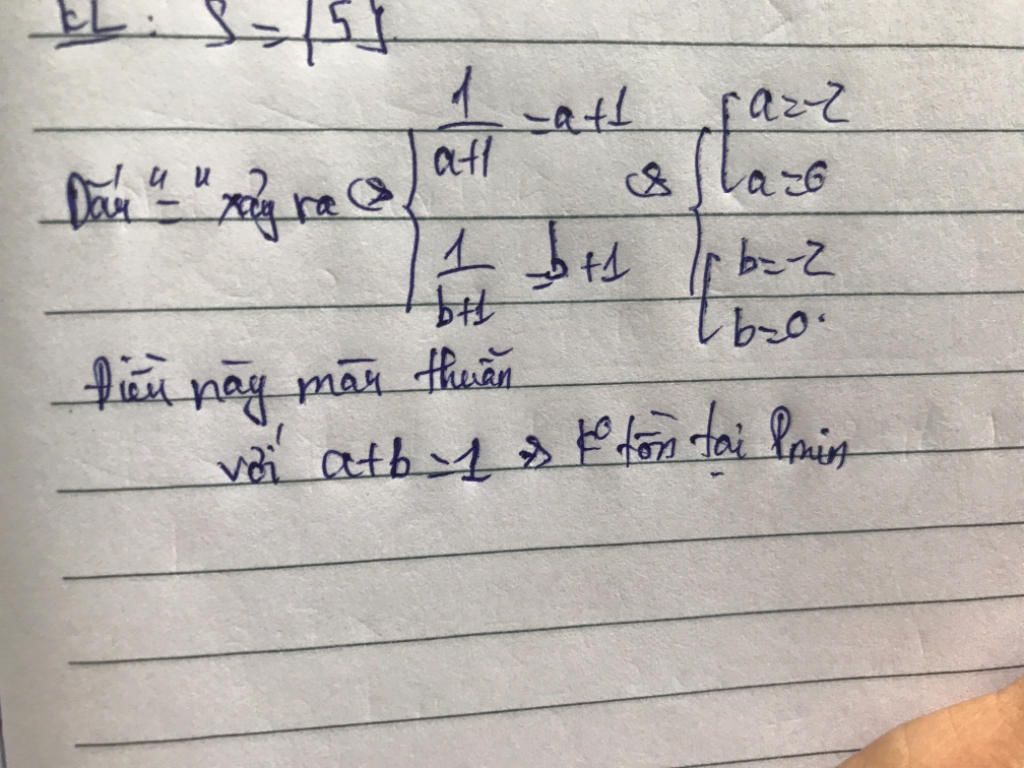 KL: S = {5}.
Dấu "=" xảy ra ⇔ { 1/(a+1) = a+1 ⇔ { [ a=-2
a=0
1/(b+1) = b+1 [ b=-2
b=0.
Điều này mâu thuẫn
với a+b=1 ⇒ k° tồn tại Pmin